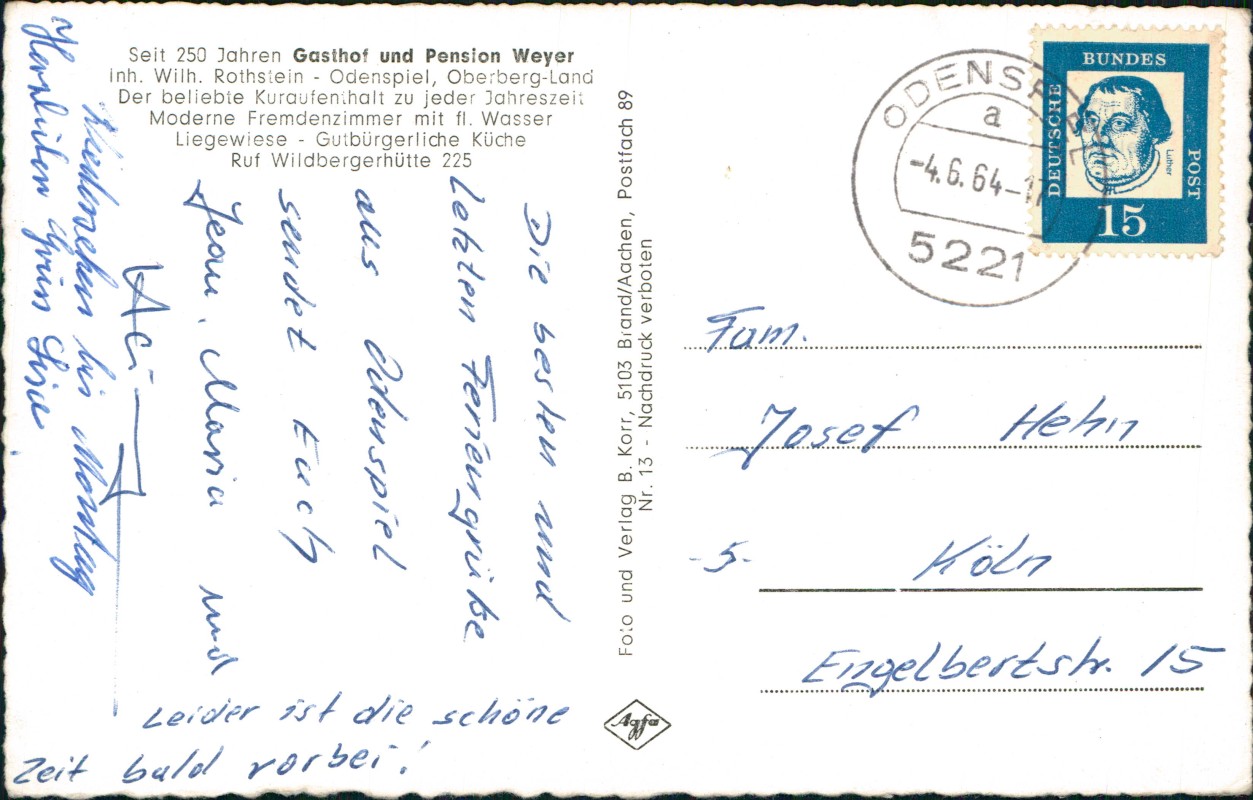 Seit 250 Jahren Gasthof und Pension Weyer
Inh. Wilh. Rothstein - Odenspiel, Oberberg-Land
Der beliebte Kuraufenthalt zu jeder Jahreszeit
Moderne Fremdenzimmer mit fl. Wasser
Liegewiese - Gutbürgerliche Küche
Ruf Wildbergerhütte 225
Die besten und
letzten Feriengrüße
aus Odenspiel
sendet Euch
Jean, Maria und
Leider ist die schöne
Zeit bald vorbei!
bis Montag
Herzlichen Gruss
Foto und Verlag B. Korr, 5103 Brand/Aachen, Postfach 89
Nr. 13 - Nachdruck verboten
Agfa
ODENSPIEL
a
-4.6.64-17
5221
DEUTSCHE
BUNDES
POST
Luther
15
Fam.
Josef Hehn
-5- Köln
Engelbertstr. 15